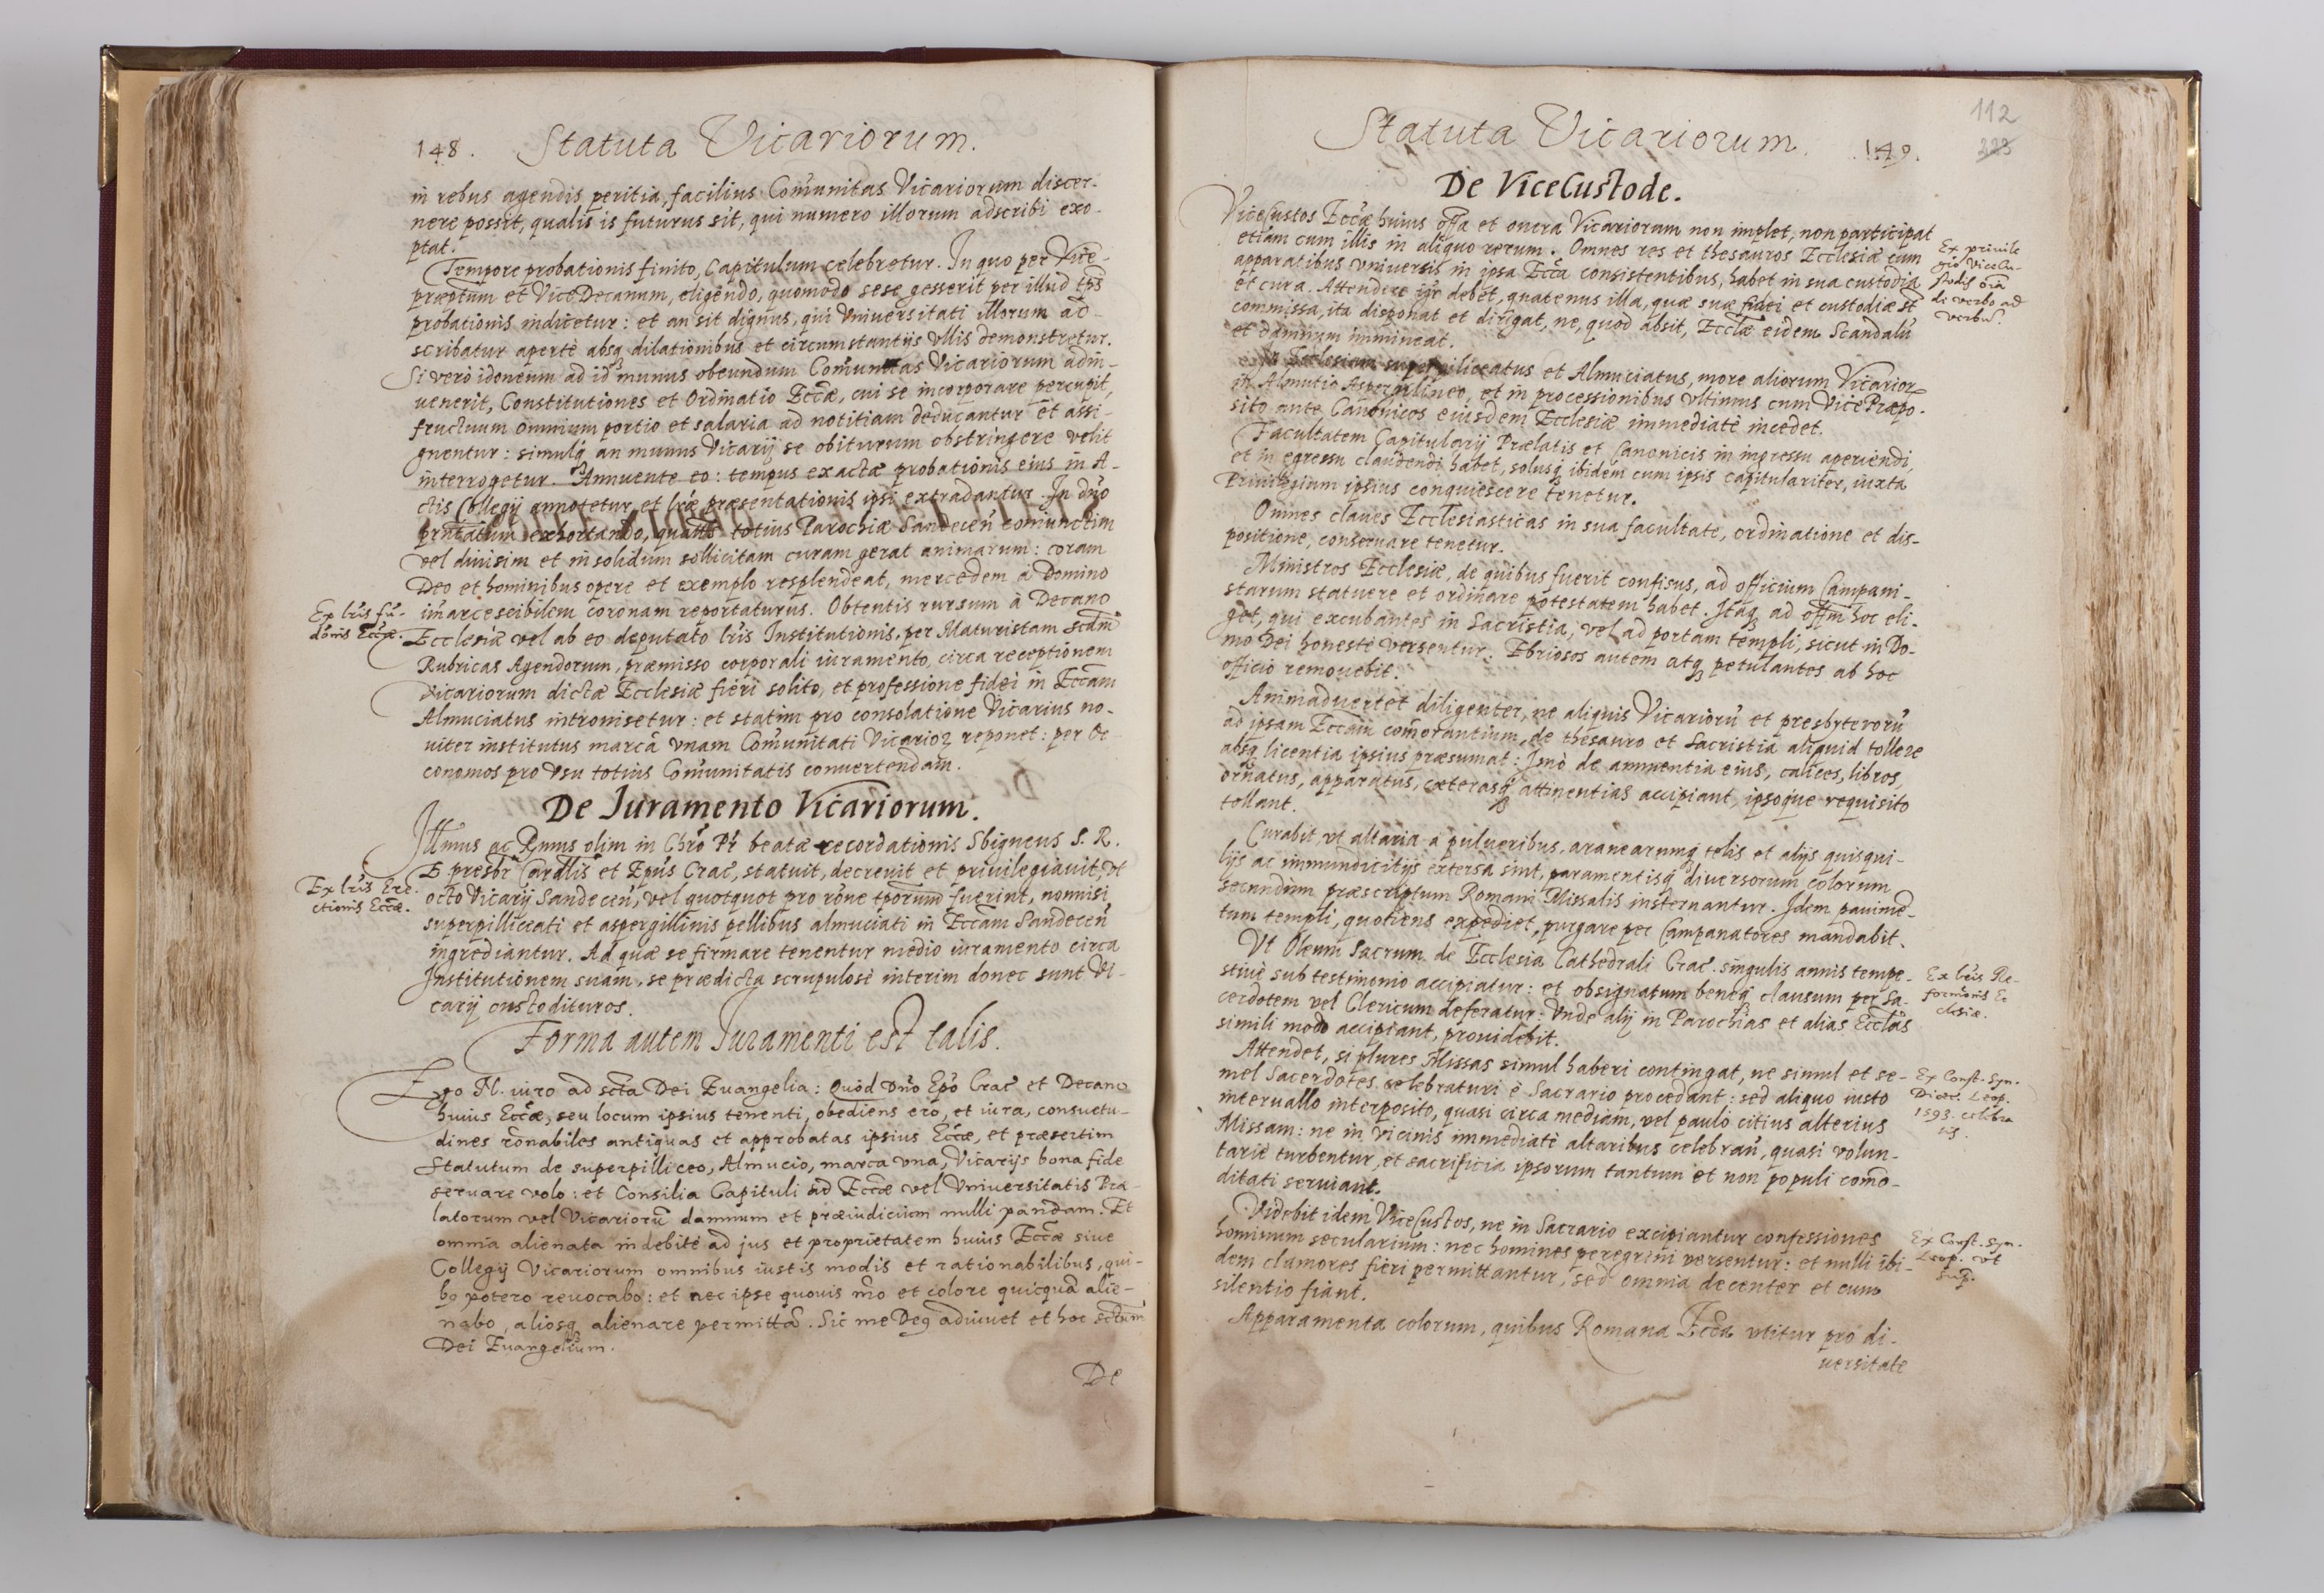 148. Statuta Vicariorum.
in rebus agendis peritia, facilius Com̃unitas Vicariorum discer-
nere possit, qualis is futurus sit, qui numero illorum adscribi exo-
ptat.
Tempore probationis finito, Capitulum celebretur. In quo per Vice-
præptũm et ViceDecanum, eligendo, quomodo sese gesserit per illud tp̃s
probationis indicetur: et an sit dignus, qui Vniuersitati illorum ad-
scribatur apertè absq dilationibus et circumstantijs vllis demonstretur.
Si verò idoneum ad id munus obeundum Com̃unitas Vicariorum adin-
uenerit, Constitutiones et Ordinatio Eccæ, cui se incorporare percupit,
fructuum omnium portio et salaria ad notitiam deducantur et assi-
gnentur: simulq an munus Vicarij se obiturum obstringere velit
interrogetur. Annuente eo: tempus exactæ probationis eius in A-
ctis Collegij annotetur et lræ præsentationis ipsi extradantur. In dño
prñtatum exhortando, quatñs totius Parochiæ Sandeceñ coniunctim
vel diuisim et in solidum sollicitam curam gerat animarum: coram
Deo et hominibus opere et exemplo resplendeat, mercedem à Domino
im̃arcescibilem coronam reportaturus. Obtentis rursum à Decano
Ex lris fũ-
dõnis Eccæ.
Ecclesiæ vel ab eo deputato lris Institutionis, per Maturistam scdm
Rubricas Agendorum, præmisso corporali iuramento, circa receptionem
vicariorum dictæ Ecclesiæ fieri solito, et professione fidei in Eccam
Almuciatus intromisetur: et statim pro consolatione Vicarius no-
uiter institutus marcã vnam Com̃unitati Vicarioꝝ reponet: per Oe-
conomos pro vsu totius Com̃unitatis conuertendam.
De Iuramento Vicariorum.
Illmus ac Rmus olim in Chro Pr beatæ recordationis Sbigneus S. R.
E presbr Cardlis et Epus Crac, statuit, decreuit et priuilegiauit, vt
Ex lris Ere-
ctionis Eccæ.
octo Vicarij Sandeceñ, vel quotquot pro rõne tporum fuerint, nonnisi
superpilliceati et aspergillinis pellibus almuciati in Eccam Sandeceñ
ingrediantur. Ad quæ se firmare tenentur medio iuramento circa
Institutionem suam, se prædicta scrupulosè interim donec sunt Vi-
carij custodituros.
Forma autem Iuramenti est talis.
Ego N. iuro ad scta Dei Euangelia: Quòd dño Epo Crac et Decano
huius Eccæ, seu locum ipsius tenenti, obediens ero, et iura, consuetu-
dines rõnabiles antiquas et approbatas ipsius Eccæ, et præsertim
Statutum de superpilliceo, Almucio, marca vna, Vicarijs bona fide
seruare volo: et Consilia Capituli ad Eccæ vel Vniuersitatis Præ-
latorum vel Vicariorũ damnum et præiudicium nulli pandam. Et
omnia alienata indebitè ad jus et proprietatem huius Eccæ siue
Collegij Vicariorum omnibus iustis modis et rationabilibus, qui-
bꝰ potero reuocabo: et nec ipse quouis mõ et colore quicquã alie-
nabo, aliosq alienare permittã. Sic me Deꝰ adiuuet et hoc sctum
Dei Euangelium.
De
Statuta Vicariorum. 149.
112
223
De ViceCustode.
ViceCustos Eccæ huius offa et onera Vicariorum non implet, non participat
etiam cum illis in aliquo rerum. Omnes res et thesauros Ecclesiæ cum
apparatibus vniuersis in ipsa Ecca consistentibus, habet in sua custodia
et cura. Attendere igr debet, quatenus illa, quæ suæ fidei et custodiæ st
commissa, ita disponat et dirigat, ne, quod absit, Ecclæ eidem Scandalũ
et damnum immineat.
Ex priuile
gio ViceCu-
stodis oĩa
de verbo ad
verbũ.
In Ecclesiam superpiliceatus et Almuciatus, more aliorum Vicarior
in Almutio Aspergilineo, et in processionibus vltimus cum VicePræpo-
sito ante Canonicos eiusdem Ecclesiæ immediatè incedet.
Facultatem Capitularij Prælatis et Canonicis in ingressu aperiendi,
et in egressu claudendi habet, solusq ibidem cum ipsis capitulariter, iuxta
Priuilegium ipsius conquiescere tenetur.
Omnes claues Ecclesiasticas in sua facultate, ordinatione et dis-
positione, conseruare tenetur.
Ministros Ecclesiæ, de quibus fuerit confisus, ad officium Campani-
starum statuere et ordinare potestatem habet. Itaq ad offm hoc eli-
get, qui excubantes in Sacristia, vel ad portam templi, sicut in Do-
mo Dei honestè versentur. Ebriosos autem atq petulantes ab hoc
officio remouebit.
Animaduertet diligenter, ne aliquis Vicariorũ et presbyterorũ
ad ipsam Eccam com̃orantium, de thesauro et Sacristia aliquid tollere
absq licentia ipsius præsumat: Imò de annuentia eius, calices, libros,
ornatus, apparatus, cæterasq attinentias accipiant, ipsoque requisito
tollant.
Curabit, vt altaria à pulueribus, aranearumq telis et alijs quisqui-
lijs ac immundicitijs extersa sint, paramentisq diuersorum colorum
secundùm præscriptum Romani Missalis insternantur. Idem pauimẽ-
tum templi, quotiens expediet, purgare per Campanatores mandabit.
Vt Oleum Sacrum de Ecclesia Cathedrali Crac. singulis annis tempe-
stiuè sub testimonio accipiatur: et obsignatum beneq clausum per Sa-
cerdotem vel Clericum deferatur. Vnde alij in Parochias et alias Ecclas
simili modo accipiant, prouidebit.
Ex lris Re-
formõnis Ec
clesiæ.
Attendet, si plures Missas simul haberi contingat, ne simul et se-
mel Sacerdotes celebraturi è Sacrario procedant: sed aliquo iusto
interuallo interposito, quasi circa mediam, vel paulò citius alterius
Missam: ne in vicinis immediatè altaribus celebrañ, quasi volun-
tariè turbentur, et sacrificia ipsorum tantum et non populi com̃o-
ditati seruiant.
Ex Const. Syn.
Diœc. Leop.
1593. celebra
tis.
Videbit idem ViceCustos, ne in Sacrario excipiantur confessiones
hominum secularium: nec homines peregrini versentur: et nulli ibi-
dem clamores fieri permittantur, sed omnia decenter et cum
silentio fiant.
Ex Const. Syn.
Leop. vt
sup.
Apparamenta colorum, quibus Romana Ecca vtitur pro di-
uersitate